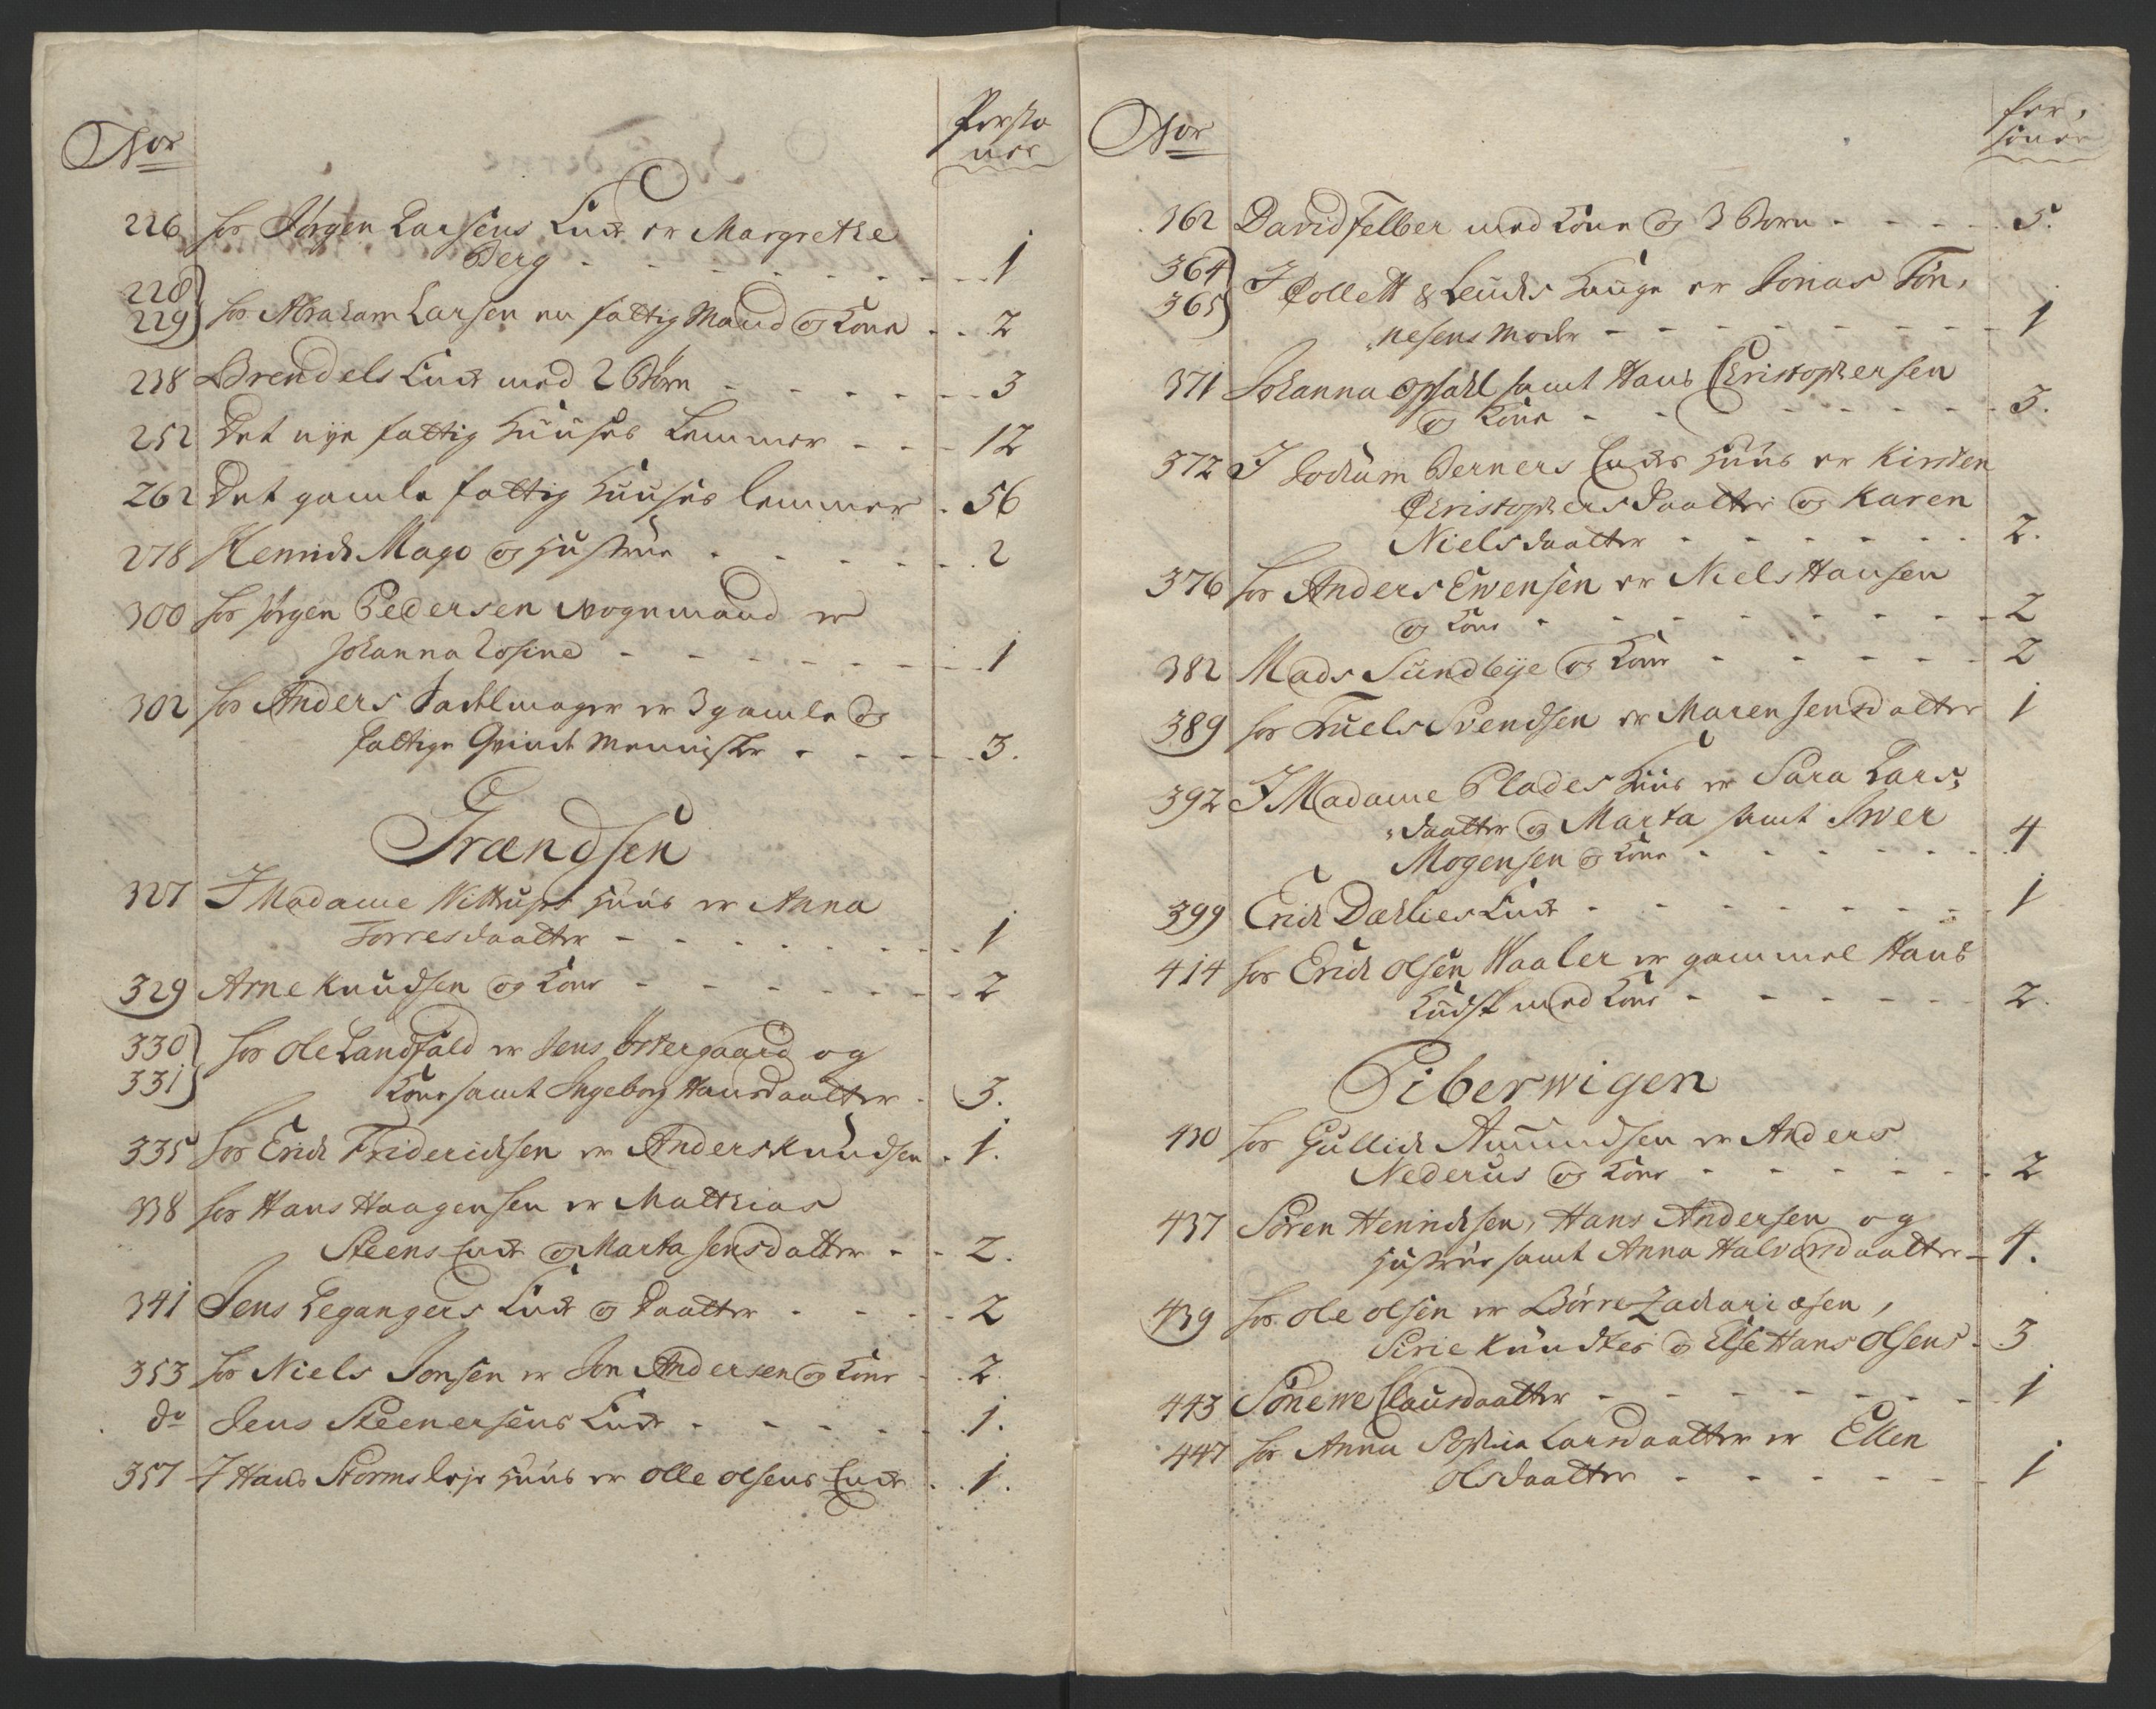 Nor
Perso
ner
226 hos Jørgen Larsens Enke er Margrethe
Berg - - - 1
228
229 hos Abraham Larsen en fattig Mand og Kone - - 2
238 Brendels Enke med 2 Børn - - - 3
252 Det nye fattig Huuses Lemmer - - - 12
262 Det gamle fattig Huuses lemmer - 56
278 Henrich Mago og Hustrue - - - 2
300 hos Jørgen Pedersen Vognmand er
Johanna Rosina - - - 1
302 hos Anders Sadelmager er 3 gamle og
fattige Qvinde Mennisker - - - 3.
Grændsen
327 I Madame Wittrups Huus er Anna
Torresdaatter - - - 1
329 Arne Knudsen og Kone - - - 2
330
331 hos Ole Landfald er Jens Østergaard og
Kone samt Ingeborg Hansdaatter - 3.
335 hos Erich Friderichsen er Anders Knudsen - 1.
338 hos Hans Haagensen er Matthias
Steens Enke og Marta Jensdatter - - 2.
341 Jens Legangers Enke og Daatter - - - 2
353 hos Niels Jonsen er Jon Andersen og Kone - 2.
do Jens Steenersens Enke - - - 1.
357 I Hans Storms leje Huus er Olle Olsens Enke - 1.
Nor
Per,
soner
362 David Felber med Kone og 3 Børn - - - 5.
364
365 I Collett & Leuchs Hauge er Jonas Tøn,
nesens Moder - - - 1
371 Johanna Opsahl samt Hans Christophersen
og Kone - - - 3.
372 I Jochum Berners Enkes Huus er Kirsten
Christophersdaatter og Karen
Nielsdaatter - - - 2.
376 hos Anders Ewensen er Niels Hansen
og Kone - - - 2
382 Mads Sundbye og Kone - - - 2
389 hos Truels Svendsen er Maren Jensdatter 1
392 I Madame Plades Huus er Sara Lars,
daatter og Marta samt Iwer
Mogensen og Kone - - - 4
399 Erich Dæhlies Enke - - - 1
414 hos Erich Olsen Waaler er gammel Hans
Kudsk med Kone - - - 2.
Piberwigen
430 hos Gullich Amundsen er Anders
Nederus og Kone - - - 2
437 Søren Henrichsen, Hans Andersen og
Hustrue samt Anna Halvorsdaatter - 4.
439 hos Ole Olsen er Børre Zachariæsen,
Sirie Knudtes og Else Hans Olsens - 3
443 Sønewe Clausdaatter - - - 1
447 hos Anna Sophia Larsdaatter er Ellen
Olsdaatter - - - 1